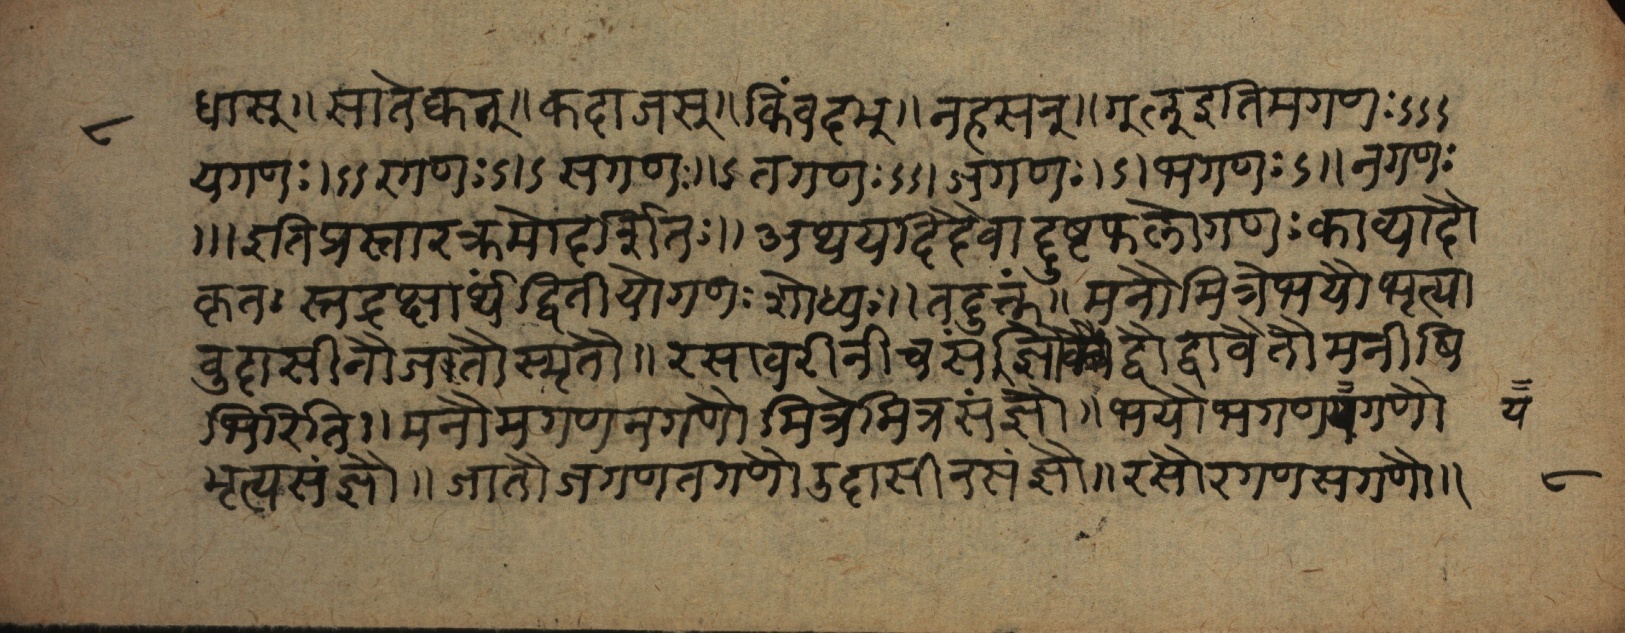 धासू॥ सातेक्कनू॥ कदाजसू॥ किंवदभू॥ नहसनू॥ गूत्नू इति मगणः ऽऽऽ
यगणः ।ऽऽ रगणः ऽ।ऽ सगणः ॥ऽ तगणः ऽऽ। जगणः ।ऽ। भगणः ऽ॥ नगणः
॥। इति प्रस्तारक्रमो दर्शितः॥ अथ यदि दैवाद्दुष्टफलो गणः काव्यादौ
कृतः स्तद्रक्षार्थं द्वितीयो गणः शोध्यः॥ तदुक्तं॥ मनौ मित्रे भयौ भृत्या
वुदासीनौ जतौ स्मृतौ॥ रसावरी नीच संज्ञौ द्वौ द्वावेतौ मनीषि
भिरिति॥ मनौ मगणनगणौ मित्रे मित्रसंज्ञौ॥ भयौ भगणयगणौ
भृत्यसंज्ञौ॥ जातौ जगणतगणौ उदासीनसंज्ञौ॥ रसौ रगणसगणौ॥
८
य
८